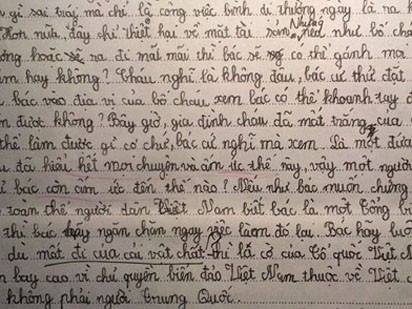 gì sai trái mà chỉ là công việc bình dị thường ngày là ra k
Hơn nữa, đây chỉ thiệt hại về mặt tài sản, Nhưng nếu như bố chá
ông hoặc sẽ ra đi mất mãi thì bác sẽ có thể gánh mọi
ầm hay không? Cháu nghĩ là không đâu, bác cứ thử đặt
bác vào địa vị của bố cháu xem bác có thể khoanh tay đ
n được không? Bây giờ, gia đình cháu đã mất trắng của
thể làm được gì cơ chứ, bác cứ nghĩ mà xem. Là một đứa
u đã hiểu hết mọi chuyện và ấm ức thế này, vậy một người
bác còn ấm ức đến thế nào? Nếu như bác muốn chứng
toàn thể người dân Việt Nam biết bác là một Tổng bí
thì bác hãy ngăn chặn ngay việc làm đó lại. Bác hãy luô
dù mất đi của cải vật chất thì lá cờ của Tổ quốc Việt N
n bay cao vì chủ quyền biển đảo Việt Nam thuộc về Việt
không phải người Trung Quốc.